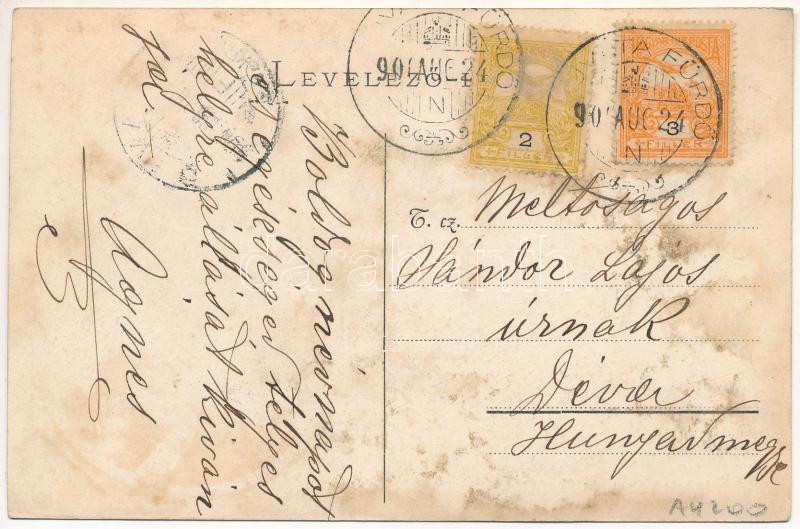 LEVELEZŐ-L
VATA FÜRDŐ
901 AUG 24
N
2
FILLÉR
VATA FÜRDŐ
901 AUG 24
N
3
FILLÉR
Boldog névnapot
és egésséged teljes
helyre állását kiván
Agnes
T. cz.
Meltóságos
Sándor Lajos
úrnak
Déva
Hunyadmegye
darabanth
A4200